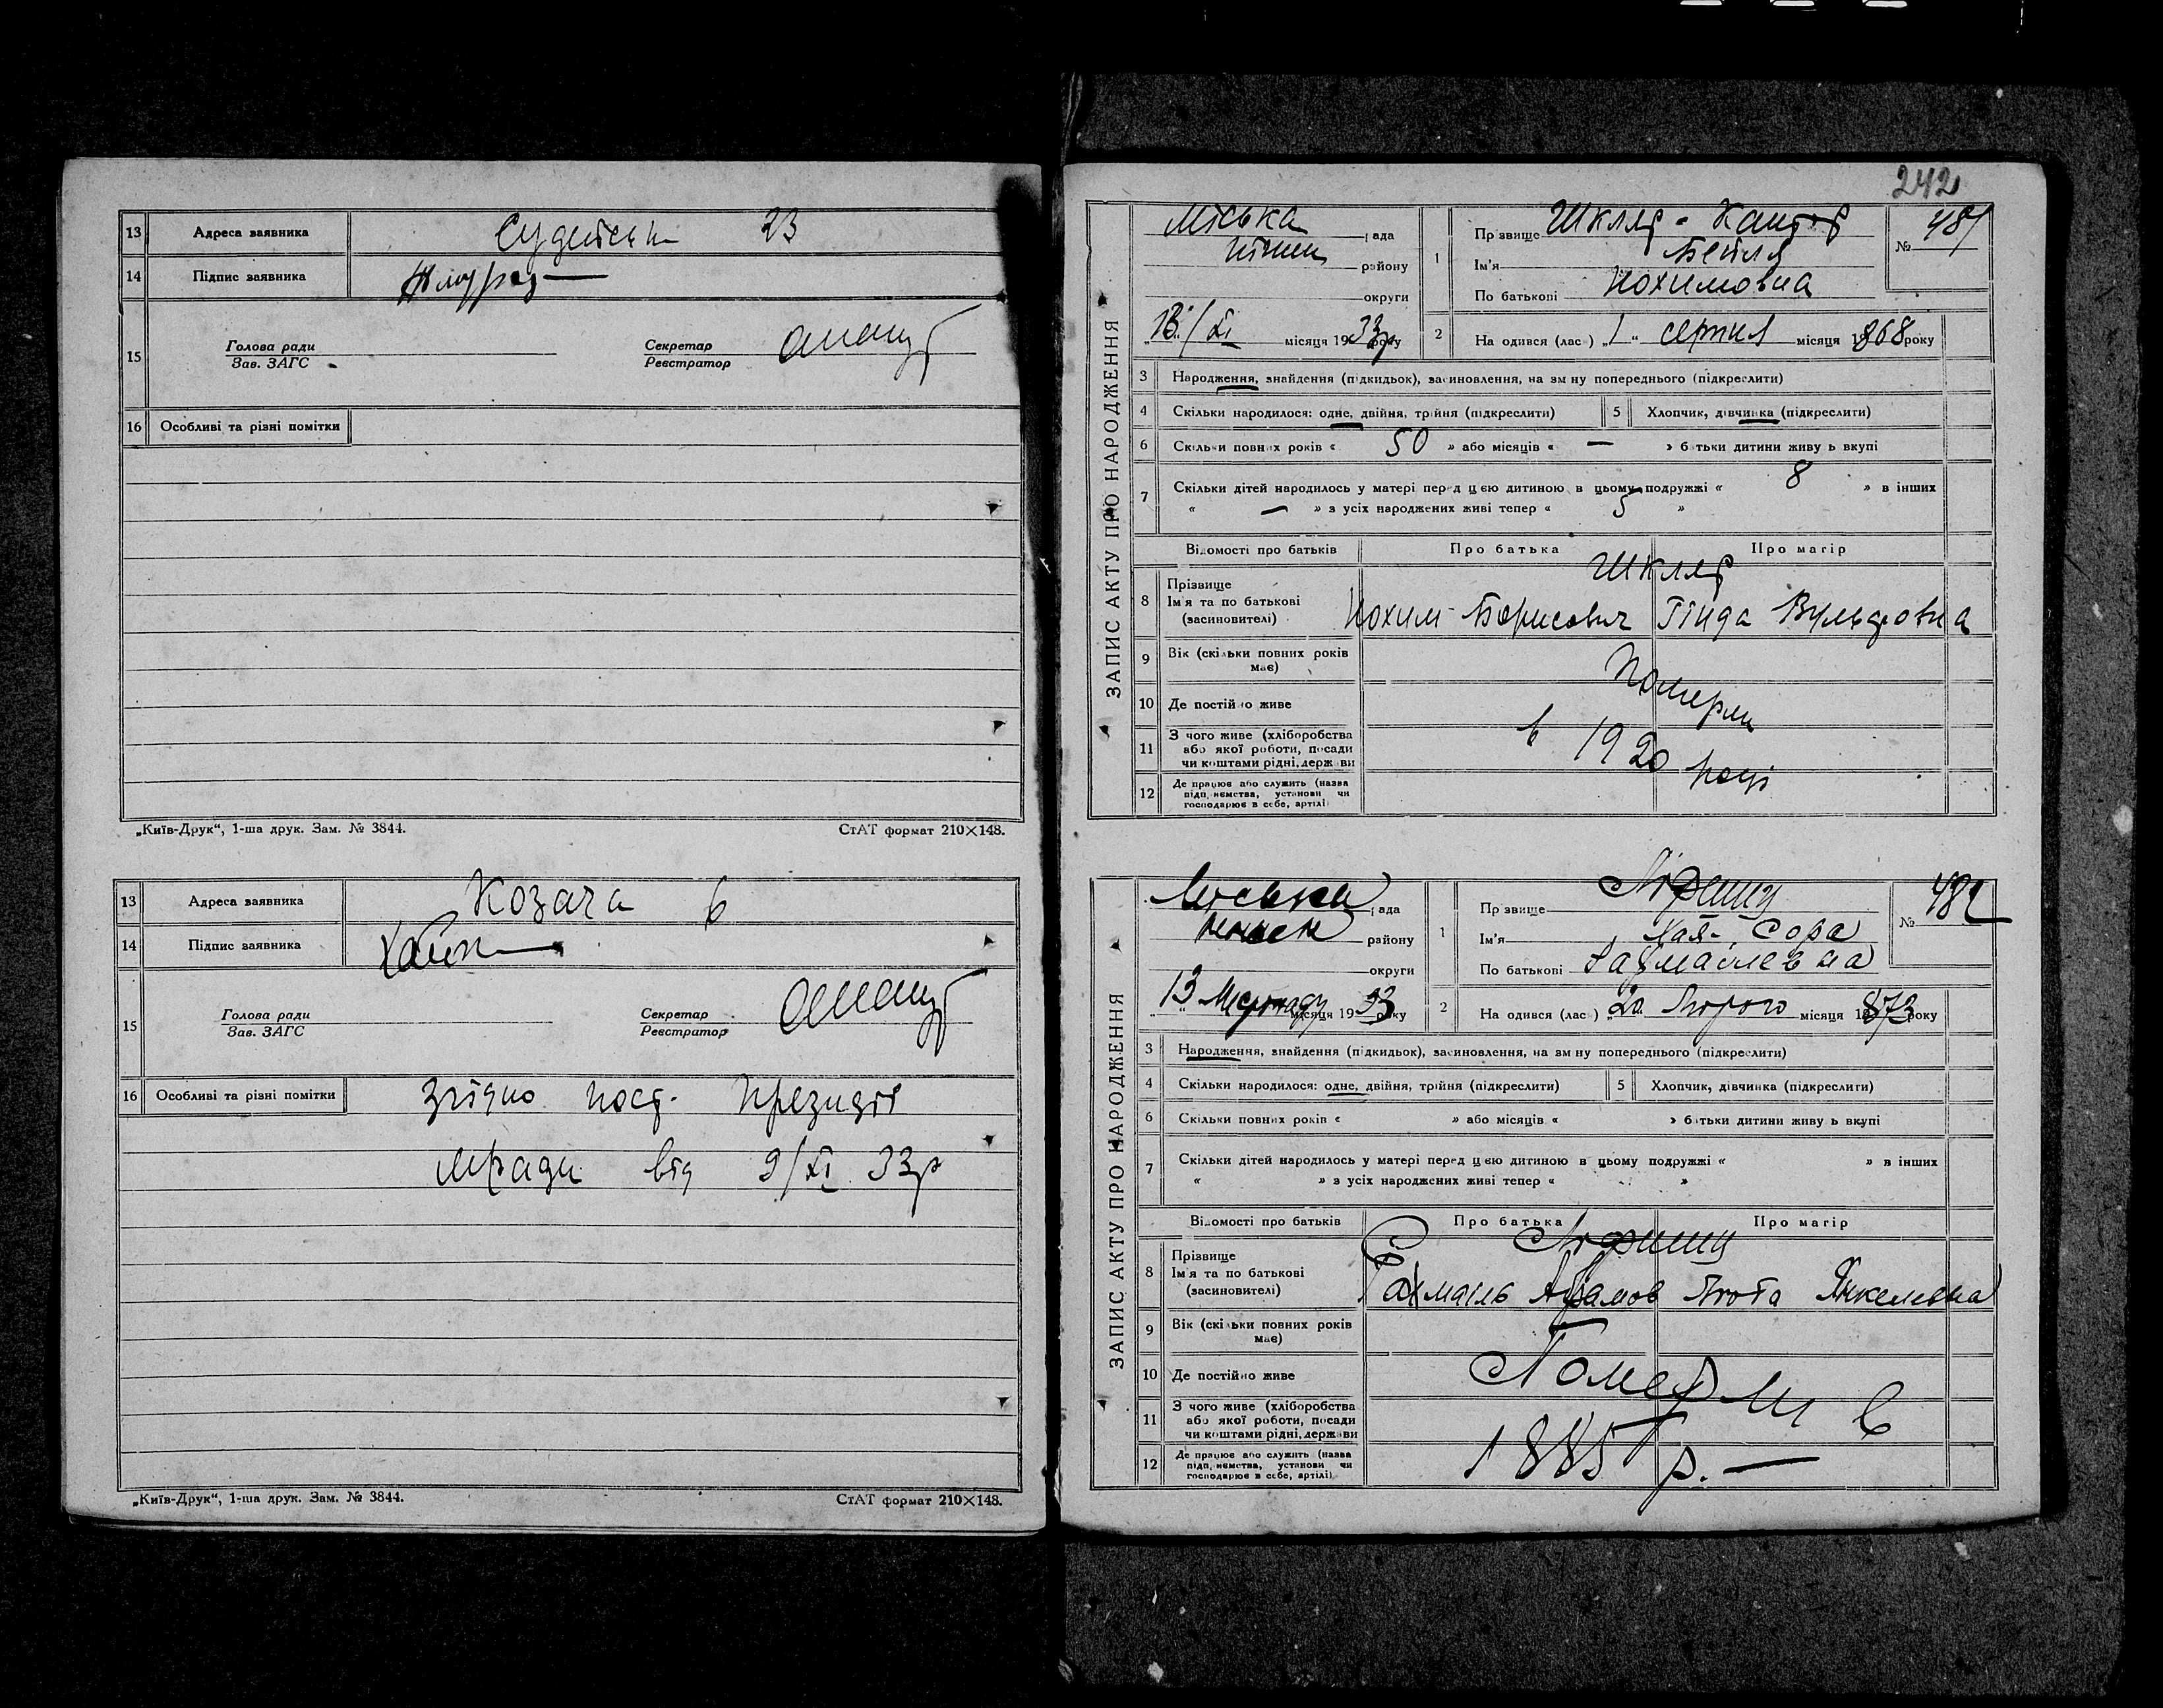 13 Адреса заявника Судейськ 23
14 Підпис заявника
15 Голова ради Зав. ЗАГС Секретар Реєстратор
16 Особливі та різні помітки
„Київ-Друк“, 1-ша друк. Зам. № 3844. СтАТ формат 210×148.
13 Адреса заявника Козача 6
14 Підпис заявника
15 Голова ради Зав. ЗАГС Секретар Реєстратор
16 Особливі та різні помітки Згідно пост. Президії
мради від 9/XI 33р
„Київ-Друк“, 1-ша друк. Зам. № 3844. СтАТ формат 210×148.
242
ЗАПИС АКТУ ПРО НАРОДЖЕННЯ
Міська рада
району
округи
13/XI місяця 1933р року
1 Прізвище Шкляр-Кантор
Ім'я Бейля
По батькові Нохимовна
№ 481
2 Народився (лась) „1“ серпня місяця 1868 року
3 Народження, знайдення (підкидьок), засиновлення, на зміну попереднього (підкреслити)
4 Скільки народилося: одне, двійня, трійня (підкреслити) 5 Хлопчик, дівчинка (підкреслити)
6 Скільки повних років « 50 » або місяців « — » батьки дитини живуть вкупі
7 Скільки дітей народилось у матері перед цією дитиною в цьому подружжі « 8 » в інших
« — » з усіх народжених живі тепер « 5 »
Відомості про батьків Про батька Про матір
8 Прізвище Шкляр
Ім'я та по батькові (засиновителі) Нохим Борисович Гінда Вульфовна
9 Вік (скільки повних років має) Померли
10 Де постійно живе
11 З чого живе (хліборобства або якої роботи, посади чи коштами рідні, держави в 1920 році
12 Де працює або служить (назва підприємства, установи чи господарює в себе, артілі)
ЗАПИС АКТУ ПРО НАРОДЖЕННЯ
Міська рада
району
округи
13 Листопаду місяця 1933 року
1 Прізвище
Ім'я Хая-Сора
По батькові Рахмаілевна
№ 482
2 Народився (лась) „20 Лютого місяця 1873 року
3 Народження, знайдення (підкидьок), засиновлення, на зміну попереднього (підкреслити)
4 Скільки народилося: одне, двійня, трійня (підкреслити) 5 Хлопчик, дівчинка (підкреслити)
6 Скільки повних років « » або місяців « » батьки дитини живуть вкупі
7 Скільки дітей народилось у матері перед цією дитиною в цьому подружжі « » в інших
« » з усіх народжених живі тепер « »
Відомості про батьків Про батька Про матір
8 Прізвище
Ім'я та по батькові (засиновителі) Рахмаіль Абрамов Янкелевна
9 Вік (скільки повних років має)
10 Де постійно живе Померли в
11 З чого живе (хліборобства або якої роботи, посади чи коштами рідні, держави
12 Де працює або служить (назва підприємства, установи чи господарює в себе, артілі) 1885 р. —